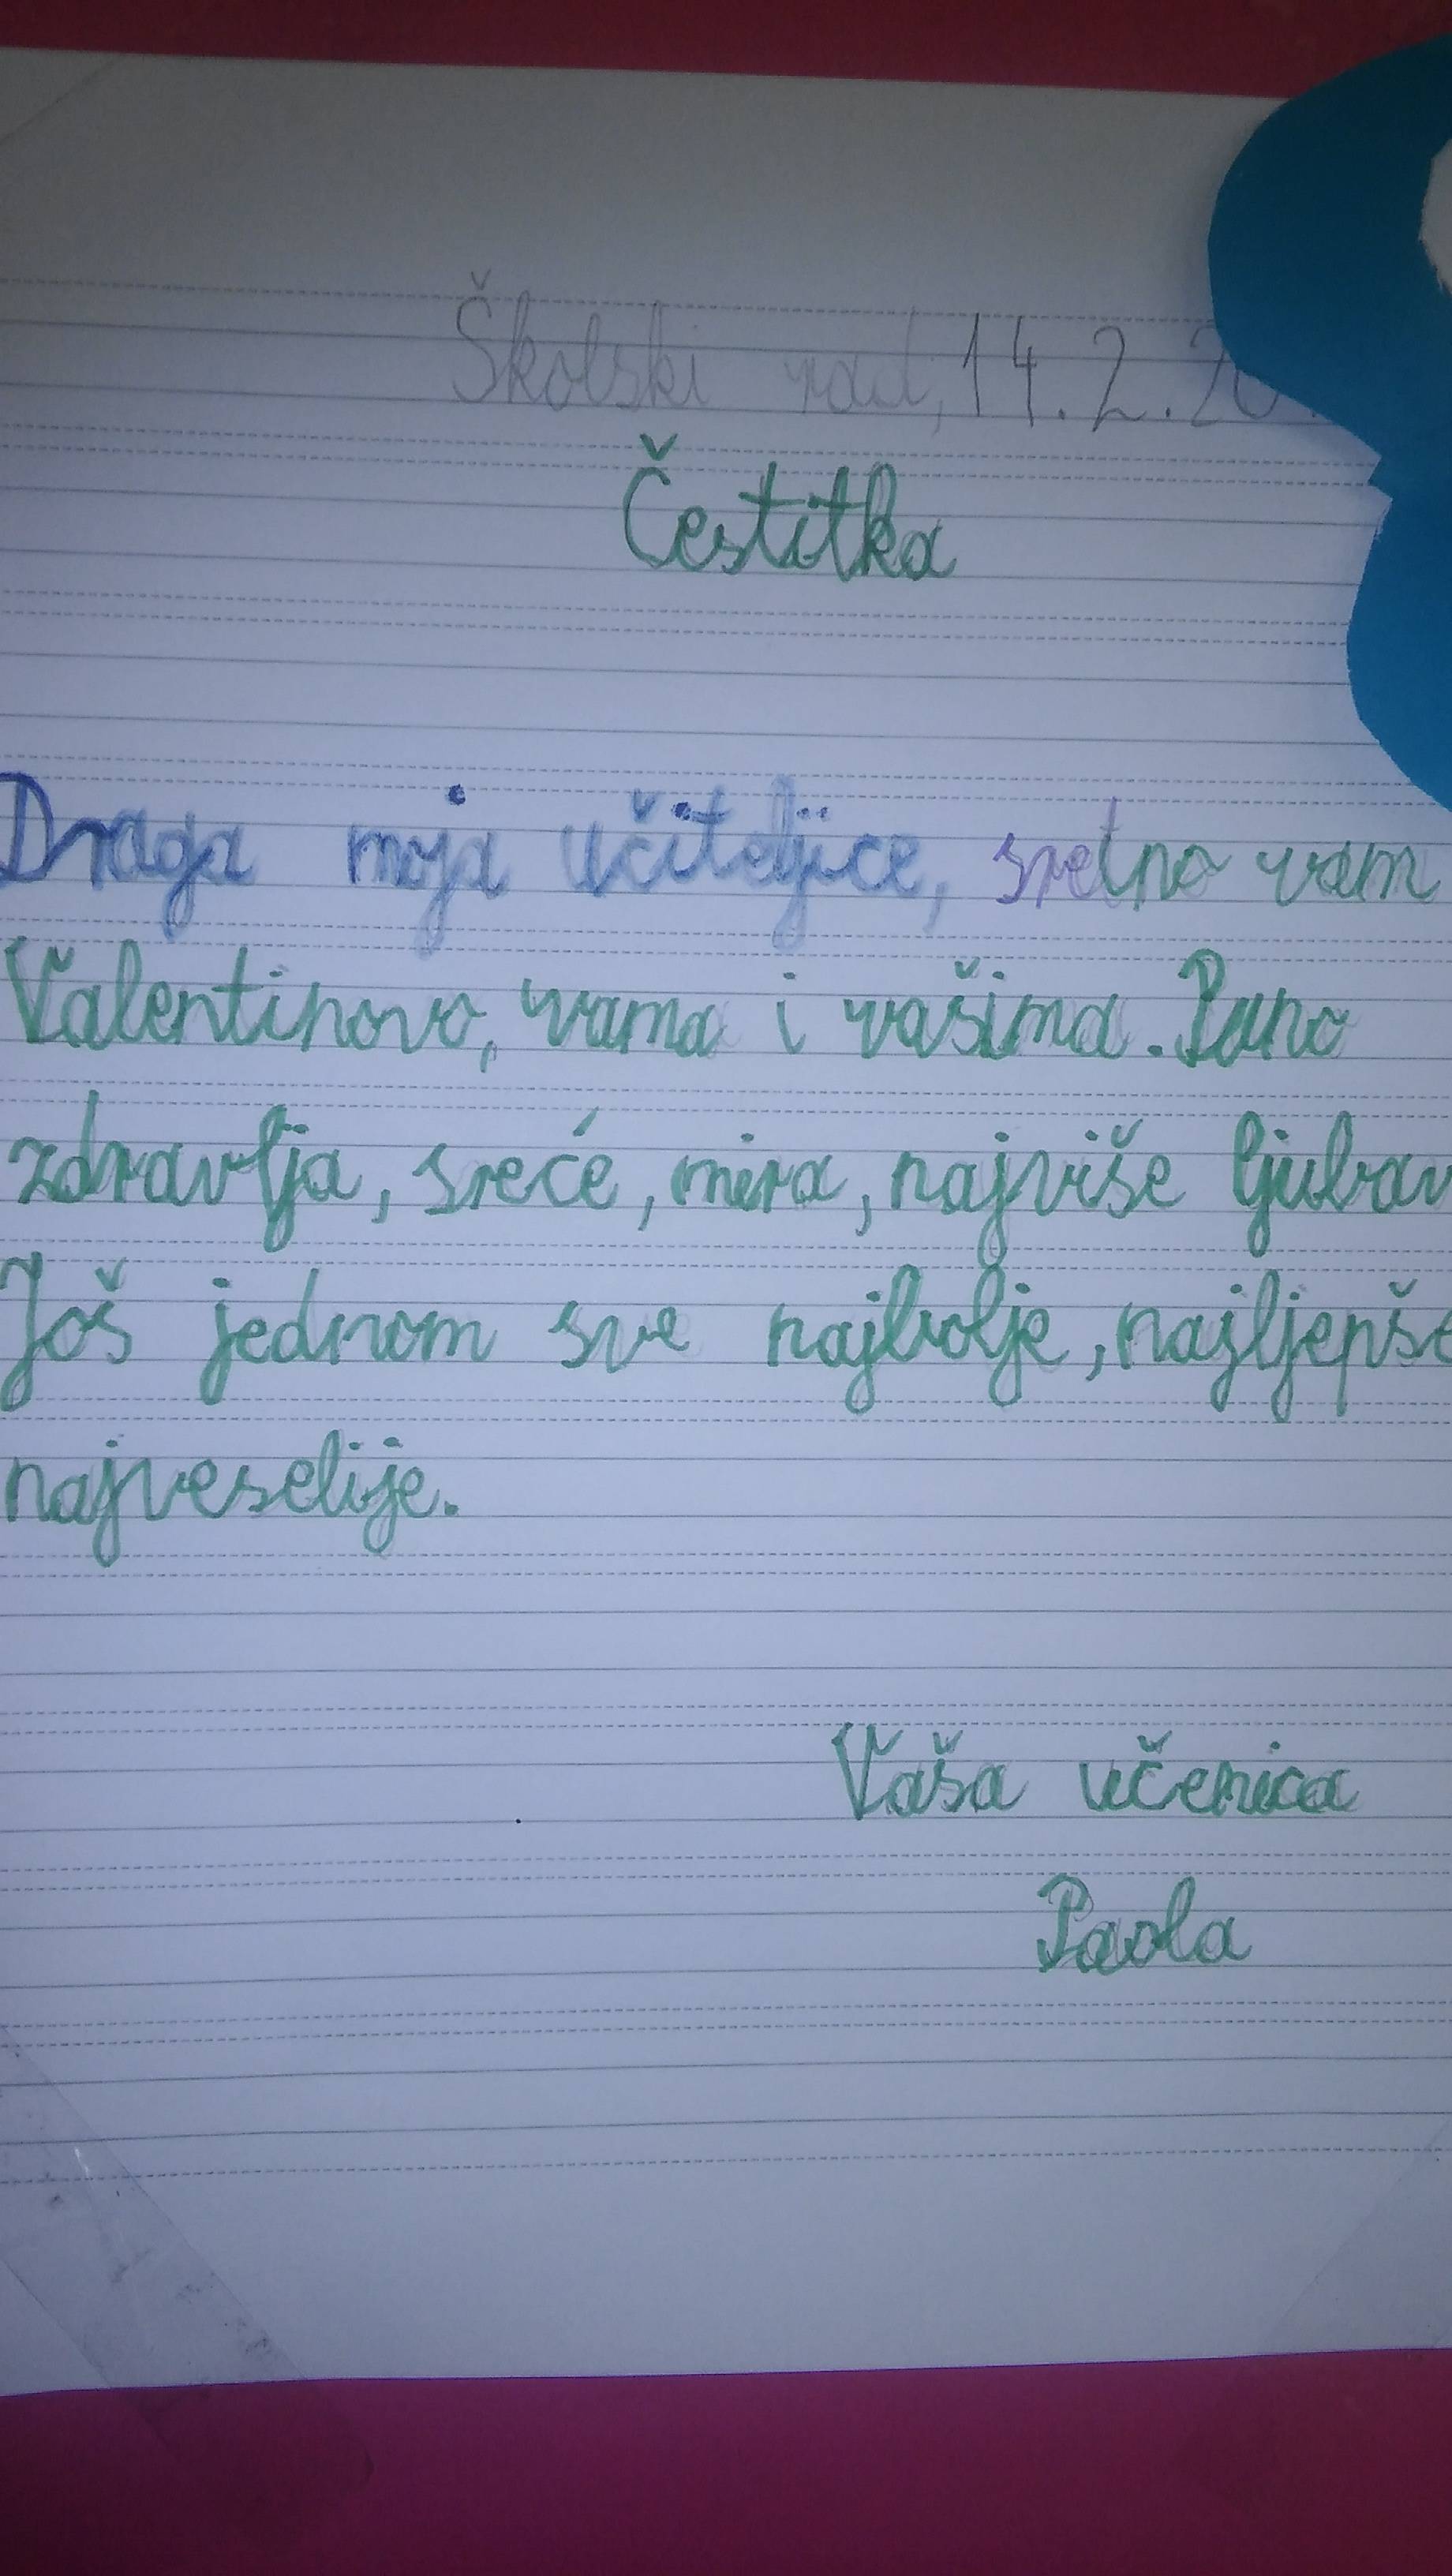 Školski rad, 14.2.20
Čestitka
Draga moja učiteljice, sretno vam
Valentinovo, vama i vašima. Puno
zdravlja, sreće, mira, najviše ljubav
Još jednom sve najbolje, najljepše
najveselije.
Vaša učenica
Paola